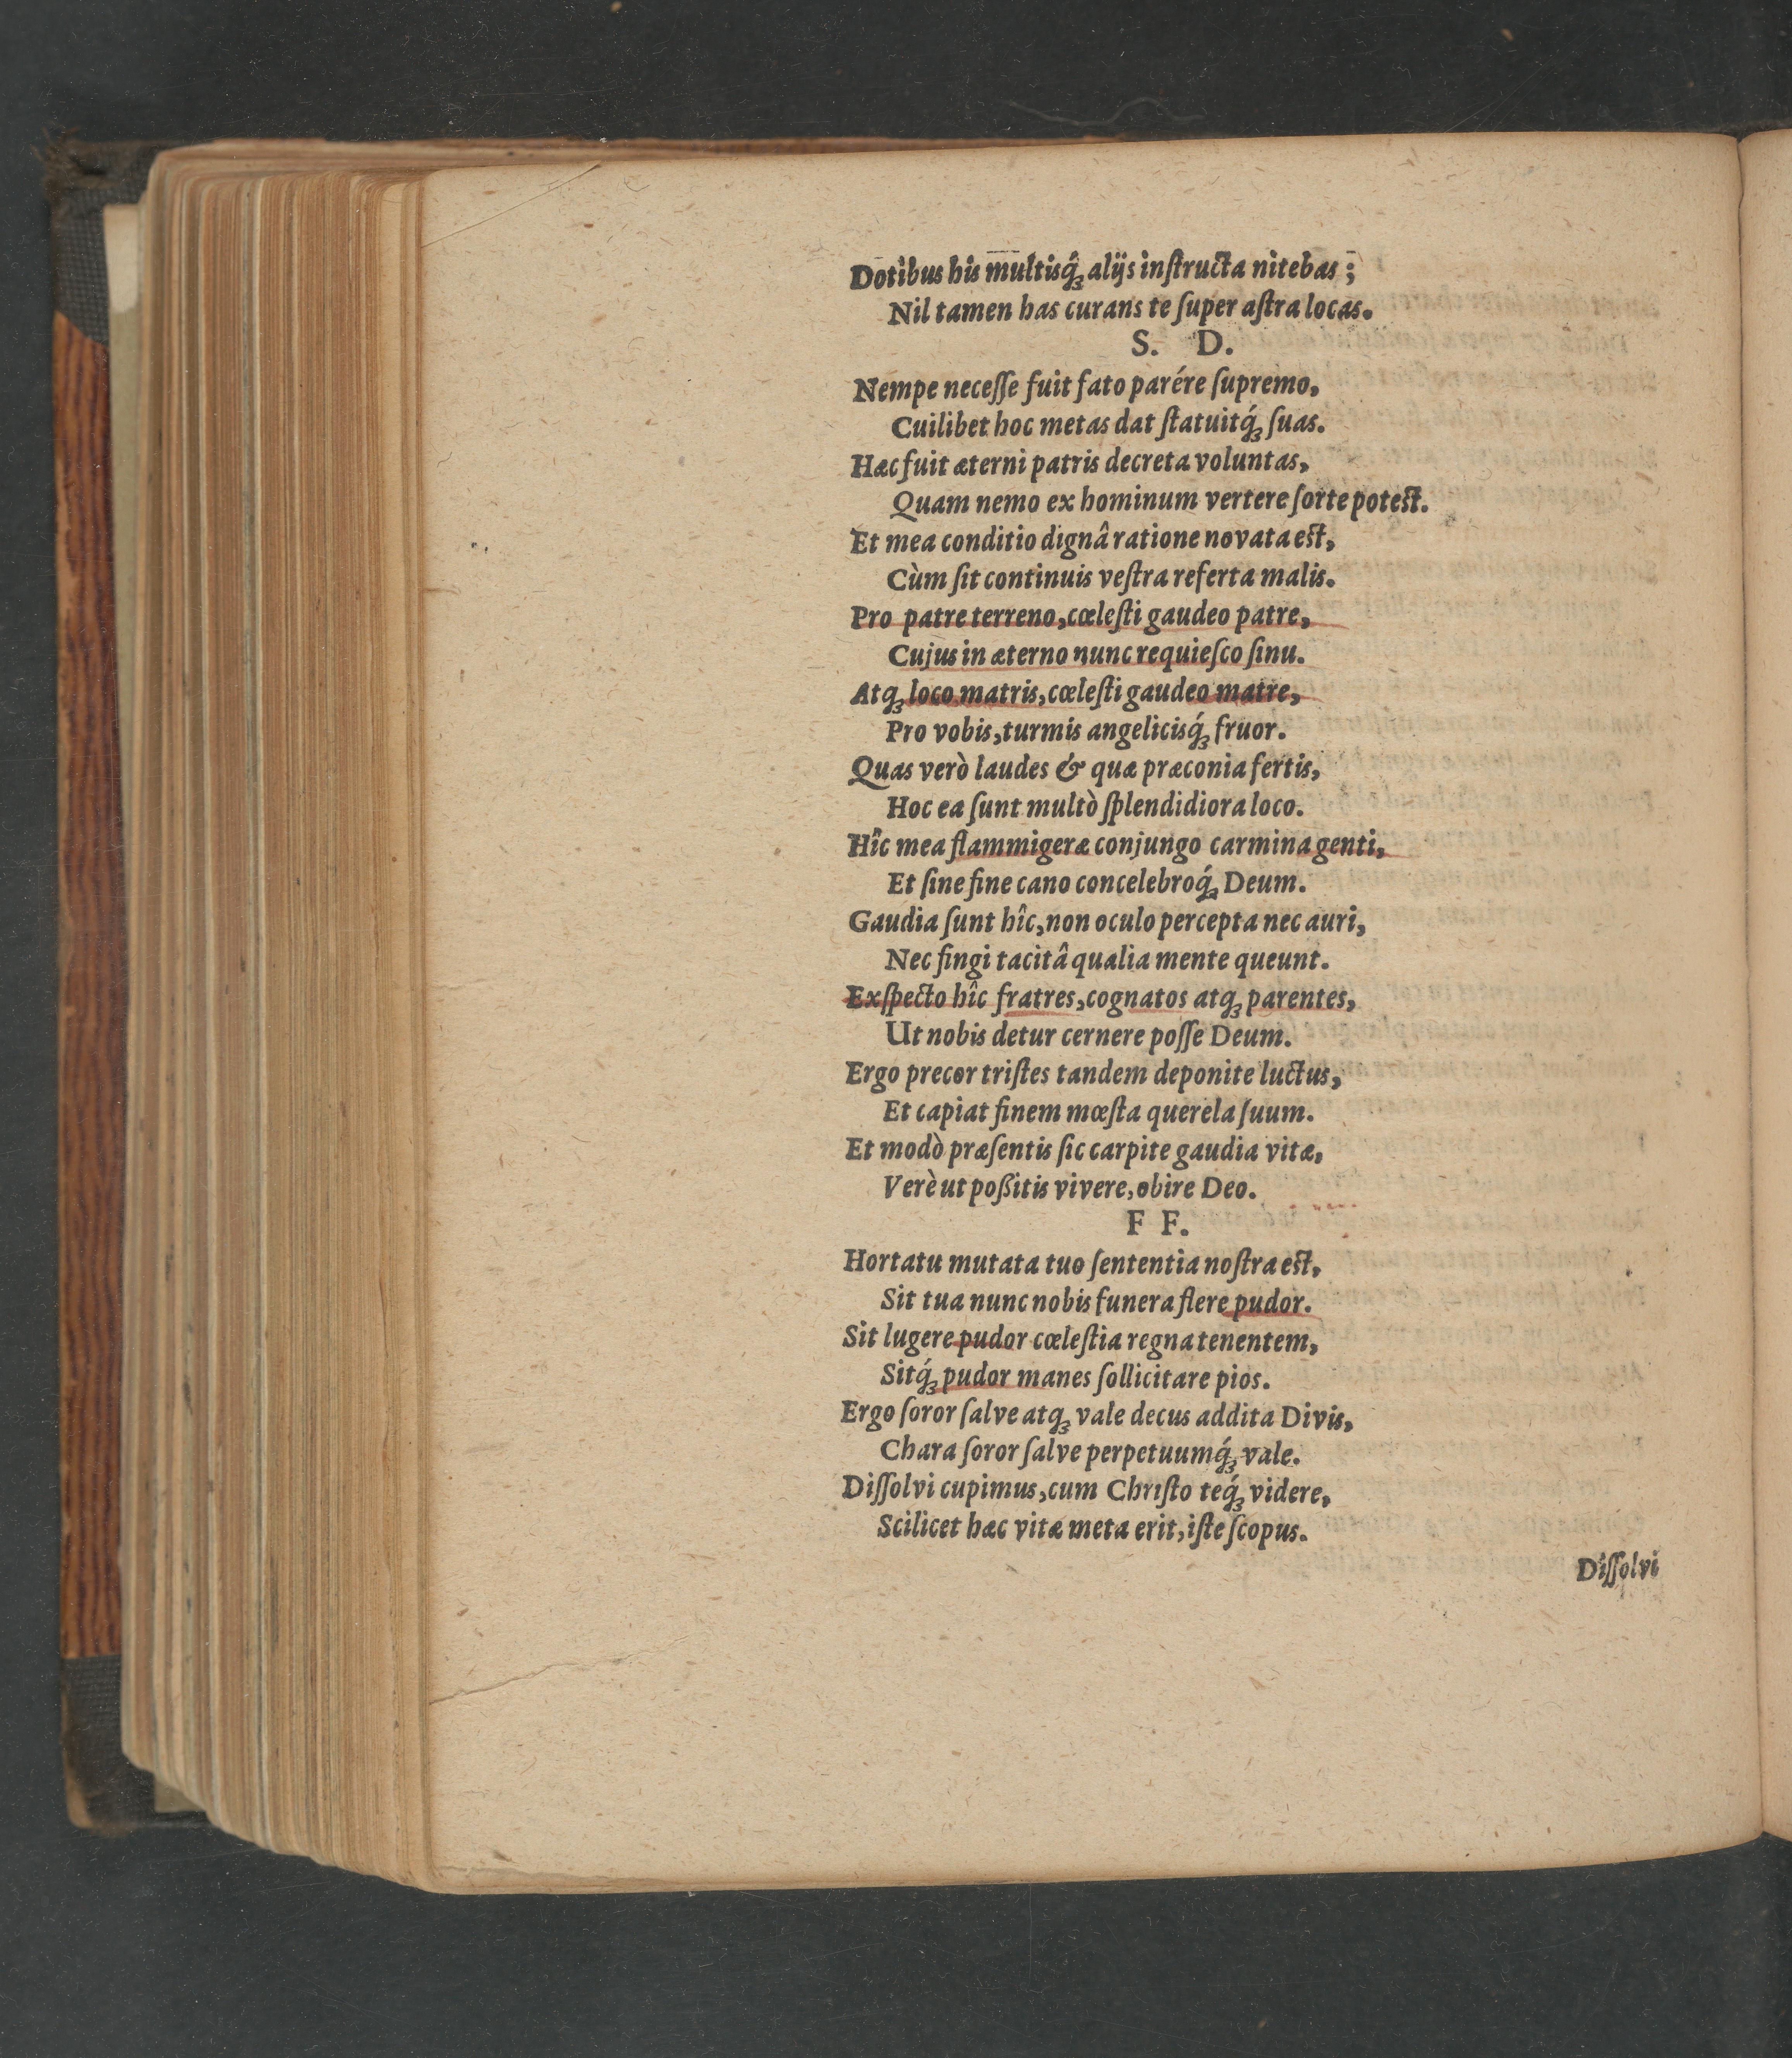 Dotibus his multisq́ꝫ alijs inſtructa nitebas;
Nil tamen has curans te ſuper aſtra locas.
S. D.
Nempe neceſſe fuit fato parére ſupremo,
Cuilibet hoc metas dat ſtatuitq́ꝫ ſuas.
Hæc fuit æterni patris decreta voluntas,
Quam nemo ex hominum vertere ſorte poteſt.
Et mea conditio dignâ ratione novata eſt,
Cùm ſit continuis veſtra referta malis.
Pro patre terreno, cœleſti gaudeo patre,
Cujus in æterno nunc requieſco ſinu.
Atqꝫ loco matris, cœleſti gaudeo matre,
Pro vobis, turmis angelicisq́ꝫ fruor.
Quas verò laudes & quæ præconia fertis,
Hoc ea ſunt multò ſplendidiora loco.
Hîc mea flammigeræ conjungo carmina genti,
Et ſine fine cano concelebroq́ꝫ Deum.
Gaudia ſunt hîc, non oculo percepta nec auri,
Nec fingi tacitâ qualia mente queunt.
Exſpecto hîc fratres, cognatos atqꝫ parentes,
Ut nobis detur cernere poſſe Deum.
Ergo precor triſtes tandem deponite luctus,
Et capiat finem mœſta querela ſuum.
Et modò præſentis ſic carpite gaudia vitæ,
Verè ut poßitis vivere, obire Deo.
F F.
Hortatu mutata tuo ſententia noſtra eſt,
Sit tua nunc nobis funera flere pudor.
Sit lugere pudor cœleſtia regna tenentem,
Sitq́ꝫ pudor manes ſollicitare pios.
Ergo ſoror ſalve atqꝫ vale decus addita Divis,
Chara ſoror ſalve perpetuumq́ꝫ vale.
Diſſolvi cupimus, cum Chriſto teq́ꝫ videre,
Scilicet hæc vitæ meta erit, iſte ſcopus.
Diſſolvi